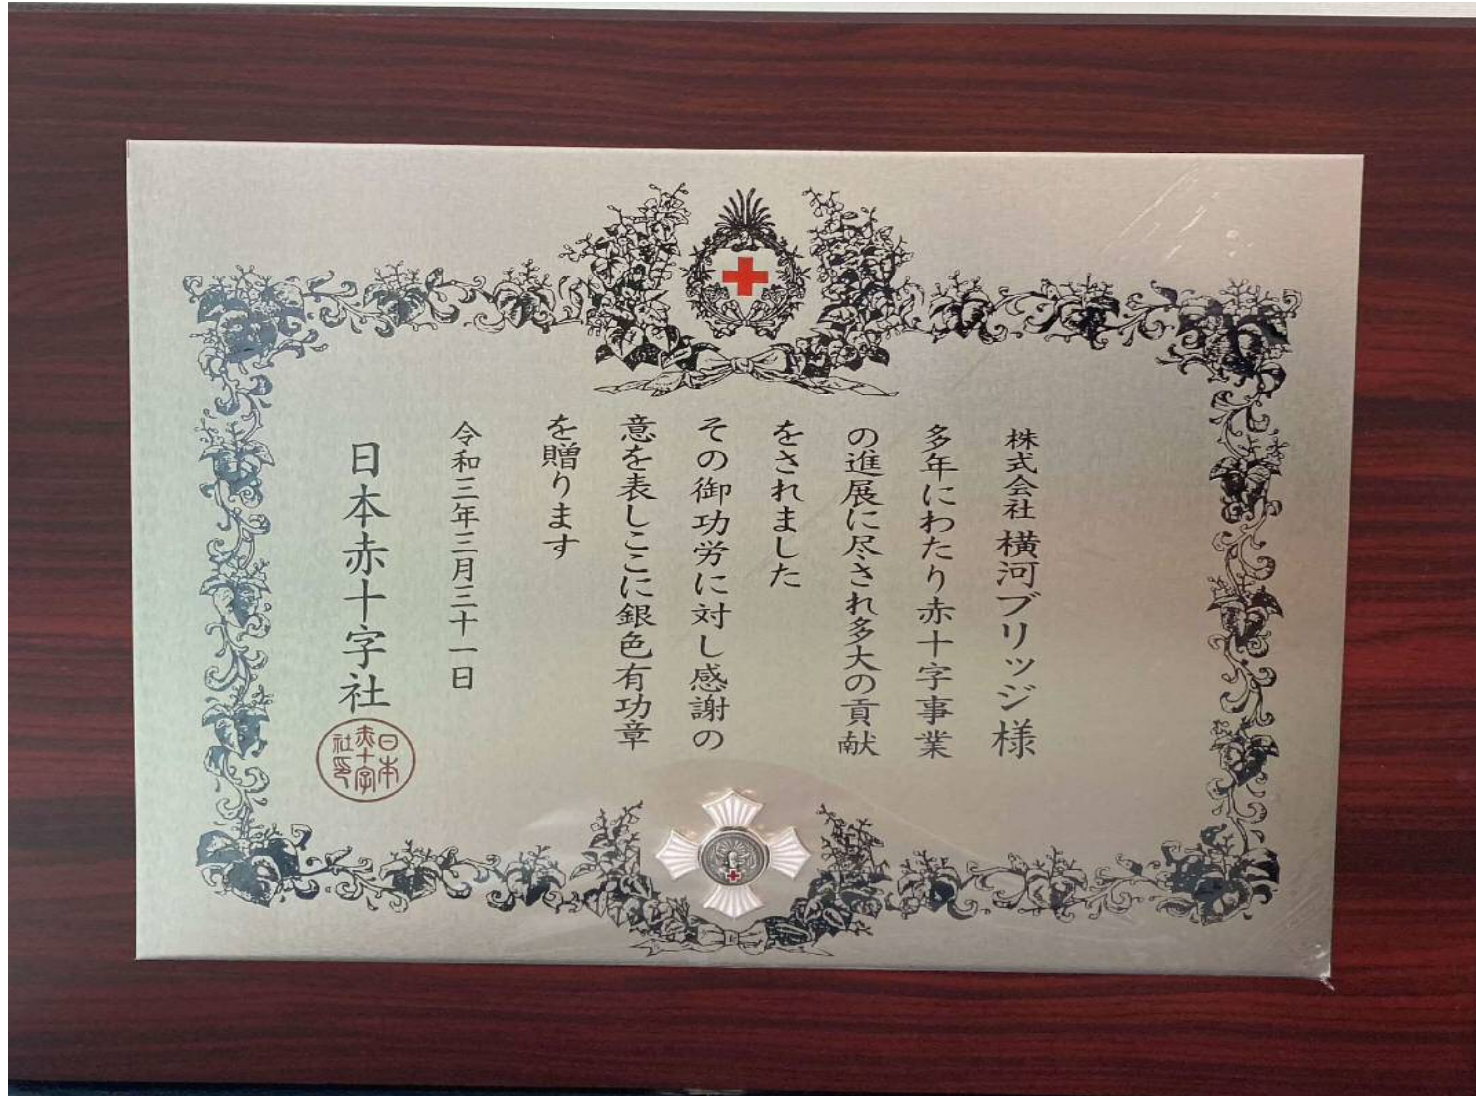 株式会社 横河ブリッジ様
多年にわたり赤十字事業
の進展に尽され多大の貢献
をされました
その御功労に対し感謝の
意を表しここに銀色有功章
を贈ります
令和三年三月三十一日
日本赤十字社
日本
赤十字
社印